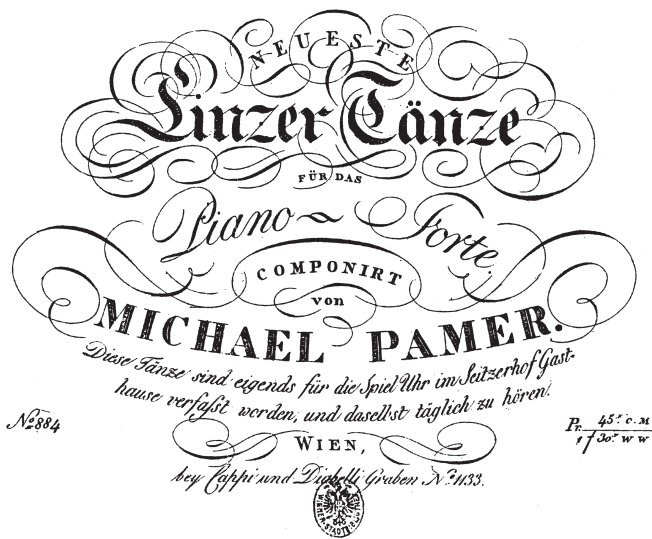 NEUESTE
Linzer Tänze
FÜR DAS
Piano-Forte.
COMPONIRT
von
MICHAEL PAMER.
Diese Tänze sind eigends für die Spiel Uhr im Seitzerhof Gast-
hause verfasst worden, und daselbst täglich zu hören.
No. 884
Pr. 45 x C. M
WIEN,
bey Cappi und Diabelli Graben No. 1133.